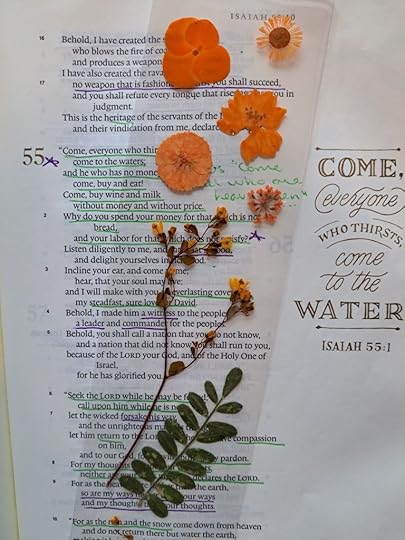 ISAIAH 55:10
16 Behold, I have created the
who blows the fire of
and produces a weapon
I have also created the
17 no weapon that is you shall succeed,
and you shall refute every tongue that you in
judgment.
This is the heritage of the servants of the
and their vindication from me,
55 "Come, everyone who
come to the waters;
and he who has no
come, buy and eat!
Come, buy wine and milk
without money and without price.
2 Why do you spend your money for that which is not
bread,
and your labor for that which does not satisfy?
Listen diligently to me, and
and delight yourselves in food.
3 Incline your ear, and come me;
hear, that your soul may
and I will make with you everlasting
my steadfast, sure love David
4 Behold, I made him a witness to the peoples,
a leader and commander for the peoples.
5 Behold, you shall call a nation that you do not know,
and a nation that did not know you shall run to you,
because of the LORD your God, and of the Holy One of
Israel,
for he has glorified you.
6 "Seek the LORD while he may be
call upon him while he is
7 let the wicked forsake his
and the unrighteous
let him return to the compassion
on him,
and to our God, pardon.
8 For my thoughts
neither are declares the LORD.
9 For as the the earth,
so are my ways your ways
and my thoughts your thoughts.
10 "For as the rain and the snow come down from heaven
and do not return there but water the earth,
"Come
who are
COME,
everyone
WHO THIRSTS,
come
to the
WATER
ISAIAH 55:1